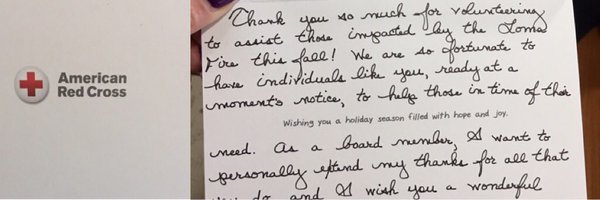 American
Red Cross
Thank you so much for volunteering
to assist those impacted by the Loma
Fire this fall! We are so fortunate to
have individuals like you, ready at a
moment's notice, to help those in time of their
Wishing you a holiday season filled with hope and joy.
need. As a board member, I want to
personally extend my thanks for all that
you do and I wish you a wonderful